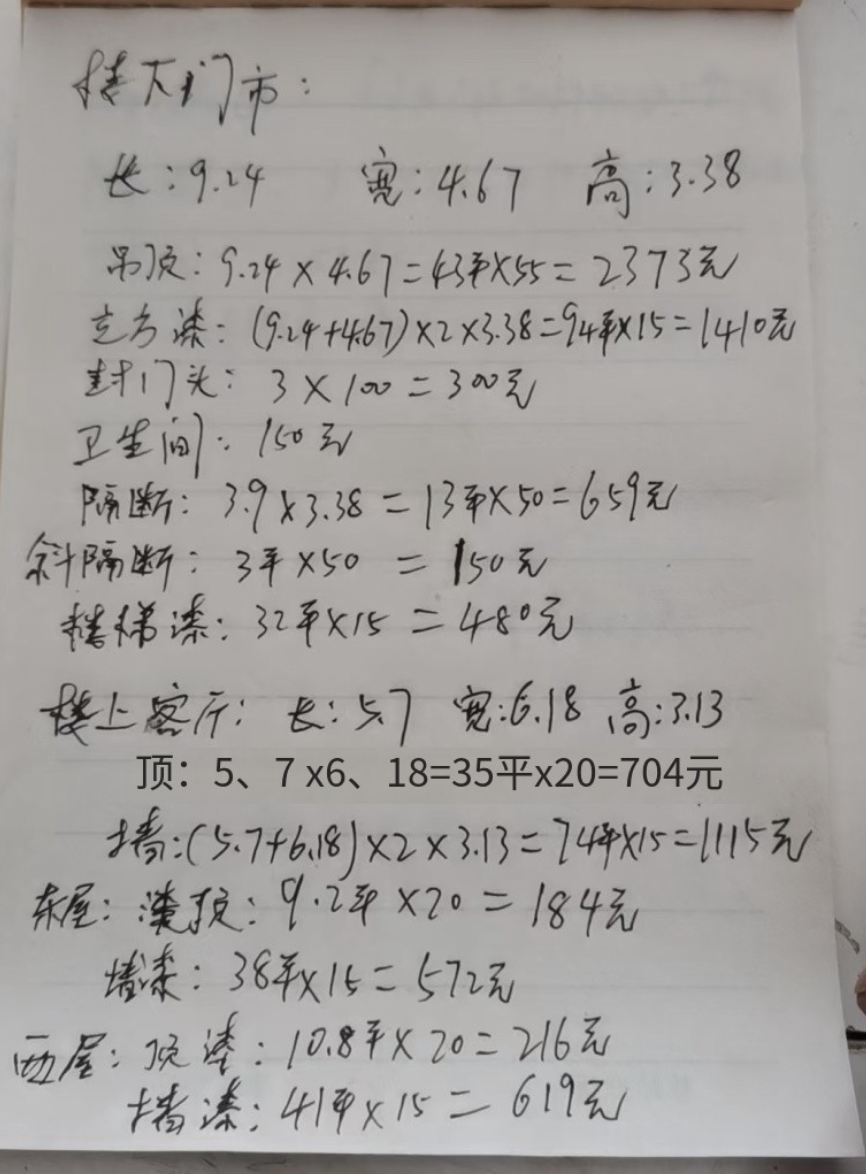 楼下门市:
长:9.24 宽:4.67 高:3.38
吊顶:9.24×4.67=43平×55=2373元
立方漆:(9.24+4.67)×2×3.38=94平×15=1410元
封门头:3×100=300元
卫生间:150元
隔断:3.9×3.38=13平×50=659元
斜隔断:3平×50=150元
楼梯漆:32平×15=480元
楼上客厅:长:5.7 宽:6.18 高:3.13
顶：5、7 x6、18=35平x20=704元
墙:(5.7+6.18)×2×3.13=74平×15=1115元
东屋:漆顶:9.2平×20=184元
墙漆:38平×15=572元
西屋:顶漆:10.8平×20=216元
墙漆:41平×15=619元